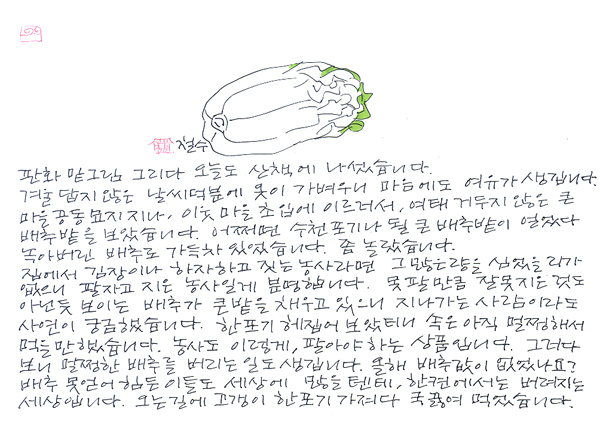 철수
판화 밑그림 그리다 오늘도 산책에 나섰습니다.
겨울 답지 않은 날씨덕분에 옷이 가벼우니 마음에도 여유가 생깁니다.
마을 공동묘지 지나, 이웃 마을 초입에 이르러서, 여태 거두지 않은 큰
배추밭을 보았습니다. 어쩌면 수천포기나 될 큰 배추밭이 얼었다
녹아버린 배추로 가득차 있었습니다. 좀 놀랐습니다.
집에서 김장이나 하자하고 짓는 농사라면 그 많은 량을 심었을 리가
없으니 팔자고 지은 농사일게 분명합니다. 못 팔만큼 잘못지은 것도
아닌듯 보이는 배추가 큰 밭을 채우고 있으니 지나가는 사람이라도
사연이 궁금했습니다. 한포기 헤집어 보았더니 속은 아직 멀쩡해서
먹을만 했습니다. 농사도 이렇게, 팔아야 하는 상품입니다. 그러다
보니 멀쩡한 배추를 버리는 일도 생깁니다. 올해 배추값이 없었나요?
배추 못얻어 힘든 이들도 세상에 많을텐데, 한켠에서는 버려지는
세상입니다. 오는길에 고갱이 한포기 가져다 국끓여 먹었습니다.